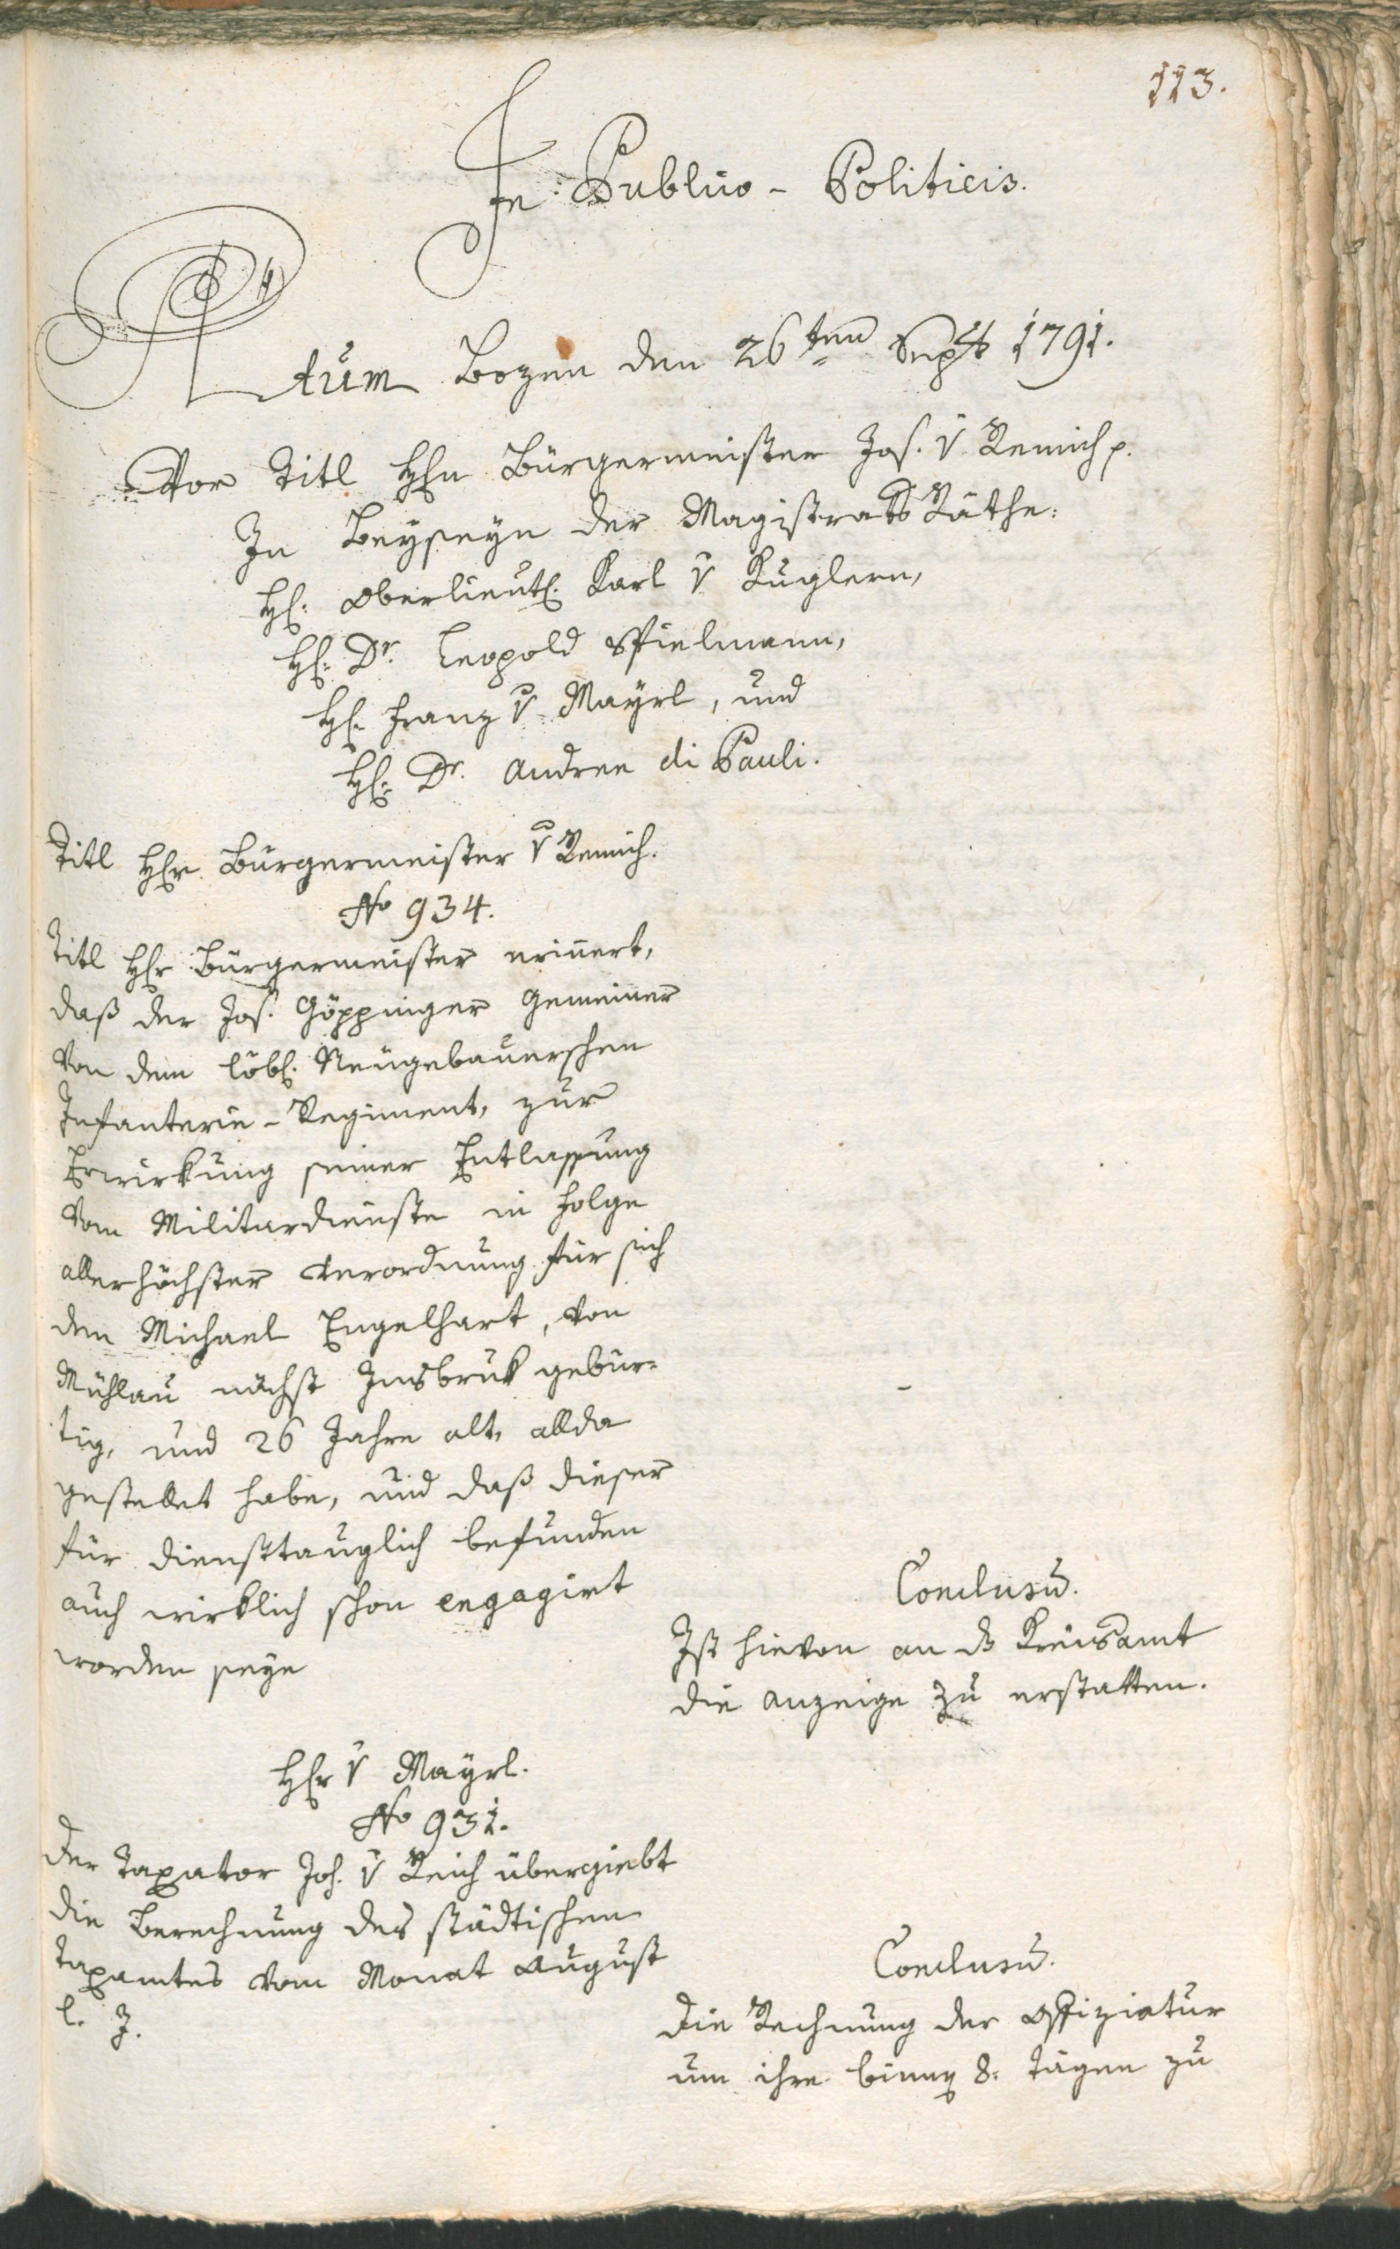 113.
In Publico-Politicis.
Actum Bozen den 26ten Septb 1791.
Vor Titl Hln Bürgermeister Jos. v Remich p.
In Beyseyn der Magistrats Räthe:
Hl. Oberlieutl. Karl v Kuglern,
Hl. Dr. Leopold Spielmann,
Hl. Franz v Mayrl, und
Hl. Dr. Andree di Pauli.
Titl Hlr Bürgermeister v Remich.
No 934.
Titl Hlr Bürgermeister erinnert,
daß der Jos. Göppinger Gemeiner
von dem löbl. Neugebauerschen
Infanterie-Regiment, zur
Erwirkung seiner Entlassung
vom Militardienste in Folge
allerhöchster Verordnung für sich
den Michael Engelhart, von
Mühlau nächst Insbruk gebür-
tig, und 26 Jahre alt, allda
gestellet habe, und daß dieser
für diensttauglich befunden
auch wirklich schon engagirt
worden seye
Conclusū.
Ist hievon an ds Kreisamt
die Anzeige zu erstatten.
Hlr v Mayrl.
No 931.
Der Taxator Joh. v Reich übergiebt
die Berechnung des städtischen
Taxamtes vom Monat August
l. J.
Conclusū.
Die Rechnung der Offiziatur
um ihre binnen 8. Tägen zu